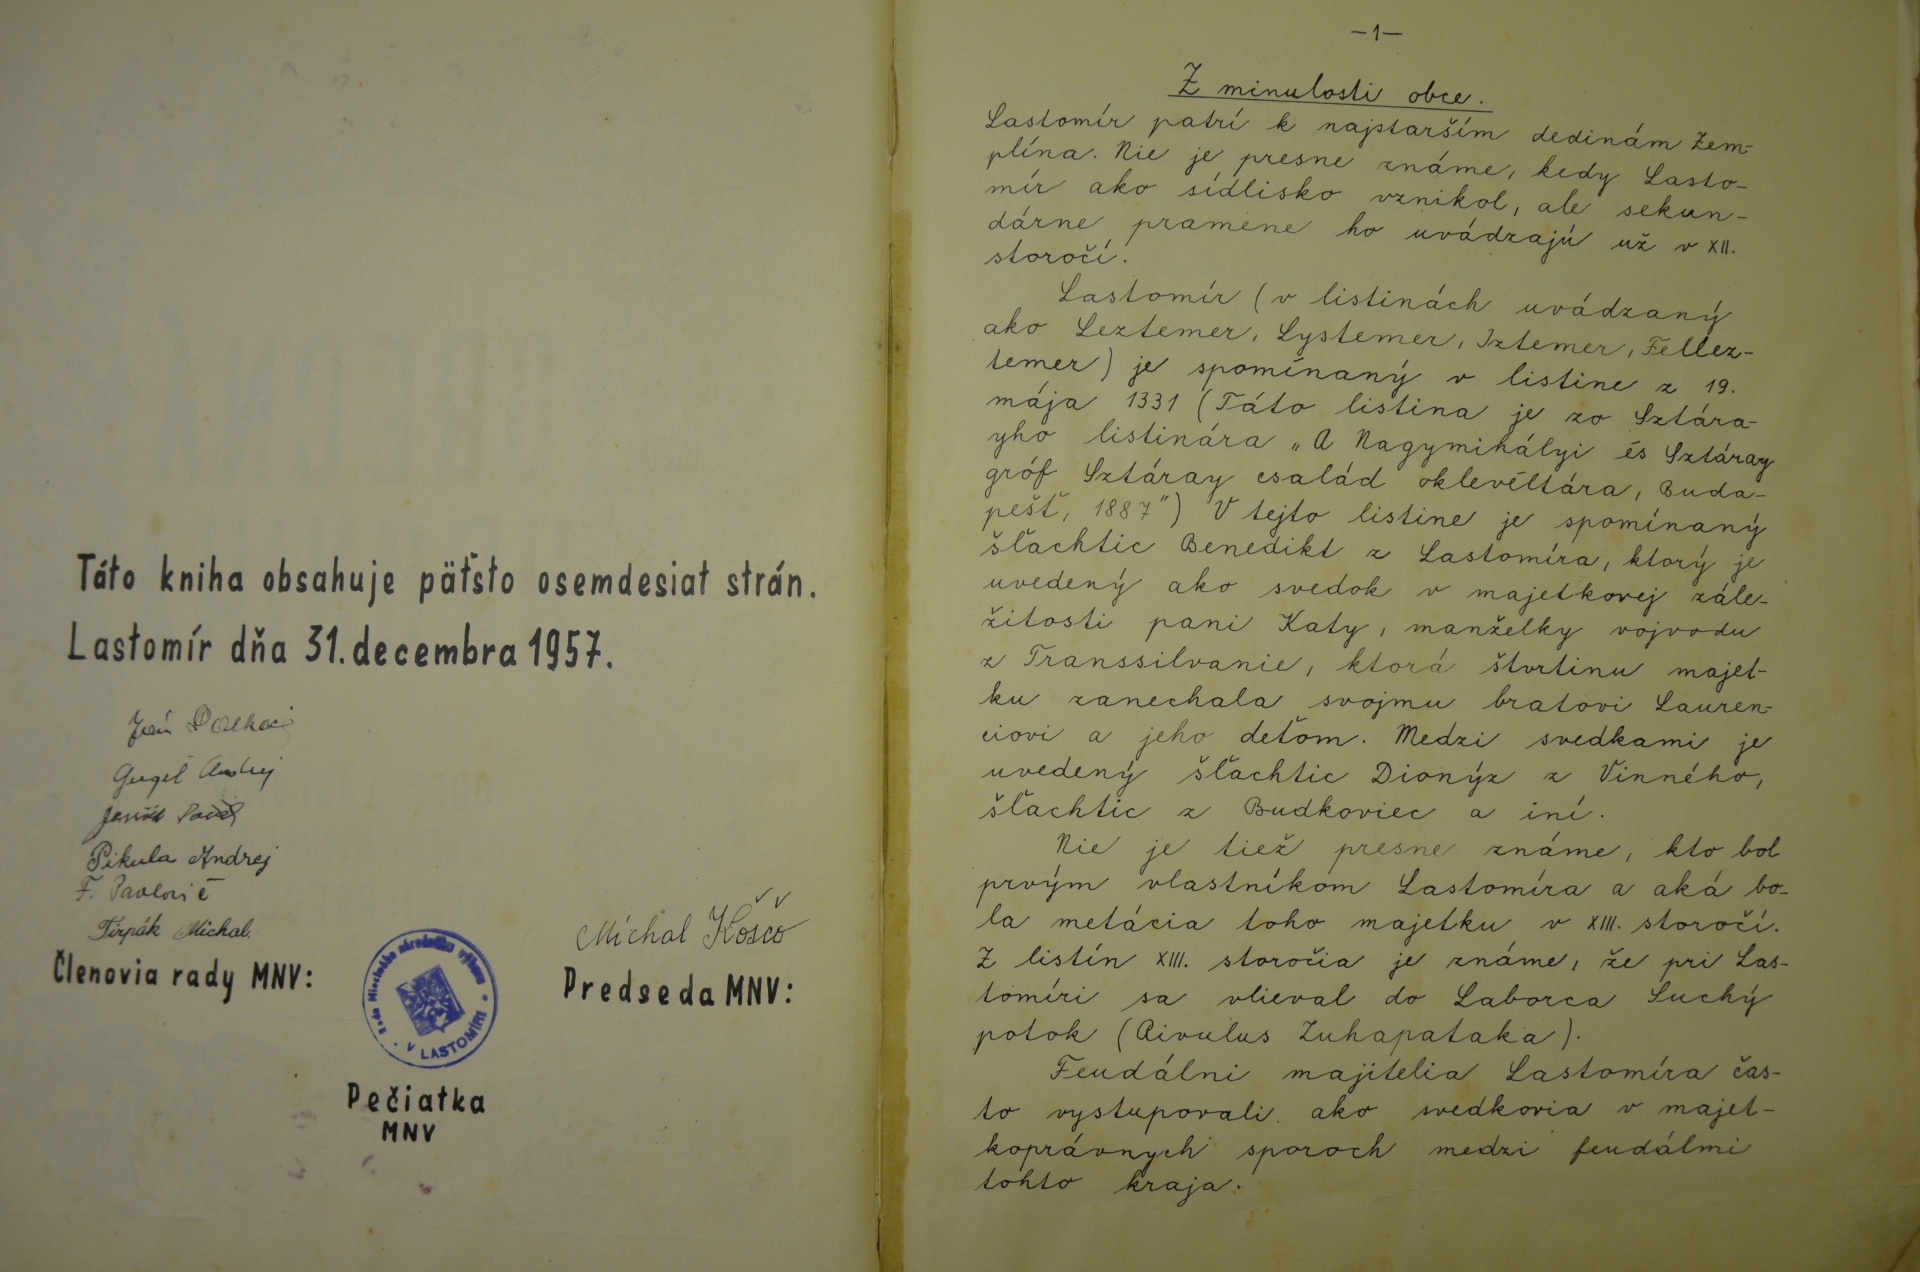 Táto kniha obsahuje päťsto osemdesiat strán.
Lastomír dňa 31. decembra 1957.
Andrej
Pikula Andrej
F. Pavlovič
Tirpák Michal.
Členovia rady MNV:
V LASTOMÍRI
Pečiatka
MNV
Michal Koščo
Predseda MNV:
—1—
Z minulosti obce.
Lastomír patrí k najstarším dedinám Zem-
plína. Nie je presne známe, kedy Lasto-
mír ako sídlisko vznikol, ale sekun-
dárne pramene ho uvádzajú už v XII.
storočí.
Lastomír (v listinách uvádzaný
ako Leztemer, Lystemer, Iztemer, Fellez-
temer) je spomínaný v listine z 19.
mája 1331 (Táto listina je zo Sztára-
yho listinára „A Nagymihályi és Sztáray
gróf Sztáray család oklevéltára, Buda-
pešť, 1887") V tejto listine je spomínaný
šľachtic Benedikt z Lastomíra, ktorý je
uvedený ako svedok v majetkovej zále-
žitosti pani Katy, manželky vojvodu
z Transsilvanie, ktorá štvrtinu majet-
ku zanechala svojmu bratovi Lauren-
ciovi a jeho deťom. Medzi svedkami je
uvedený šľachtic Dionýz z Vinného,
šľachtic z Budkoviec a iní.
Nie je tiež presne známe, kto bol
prvým vlastníkom Lastomíra a aká bo-
la metácia toho majetku v XIII. storočí.
Z listín XIII. storočia je známe, že pri Las-
tomíri sa vlieval do Laborca Suchý
potok (Rivulus Zuhapataka).
Feudálni majitelia Lastomíra čas-
to vystupovali ako svedkovia v majet-
koprávnych sporoch medzi feudálmi
tohto kraja.